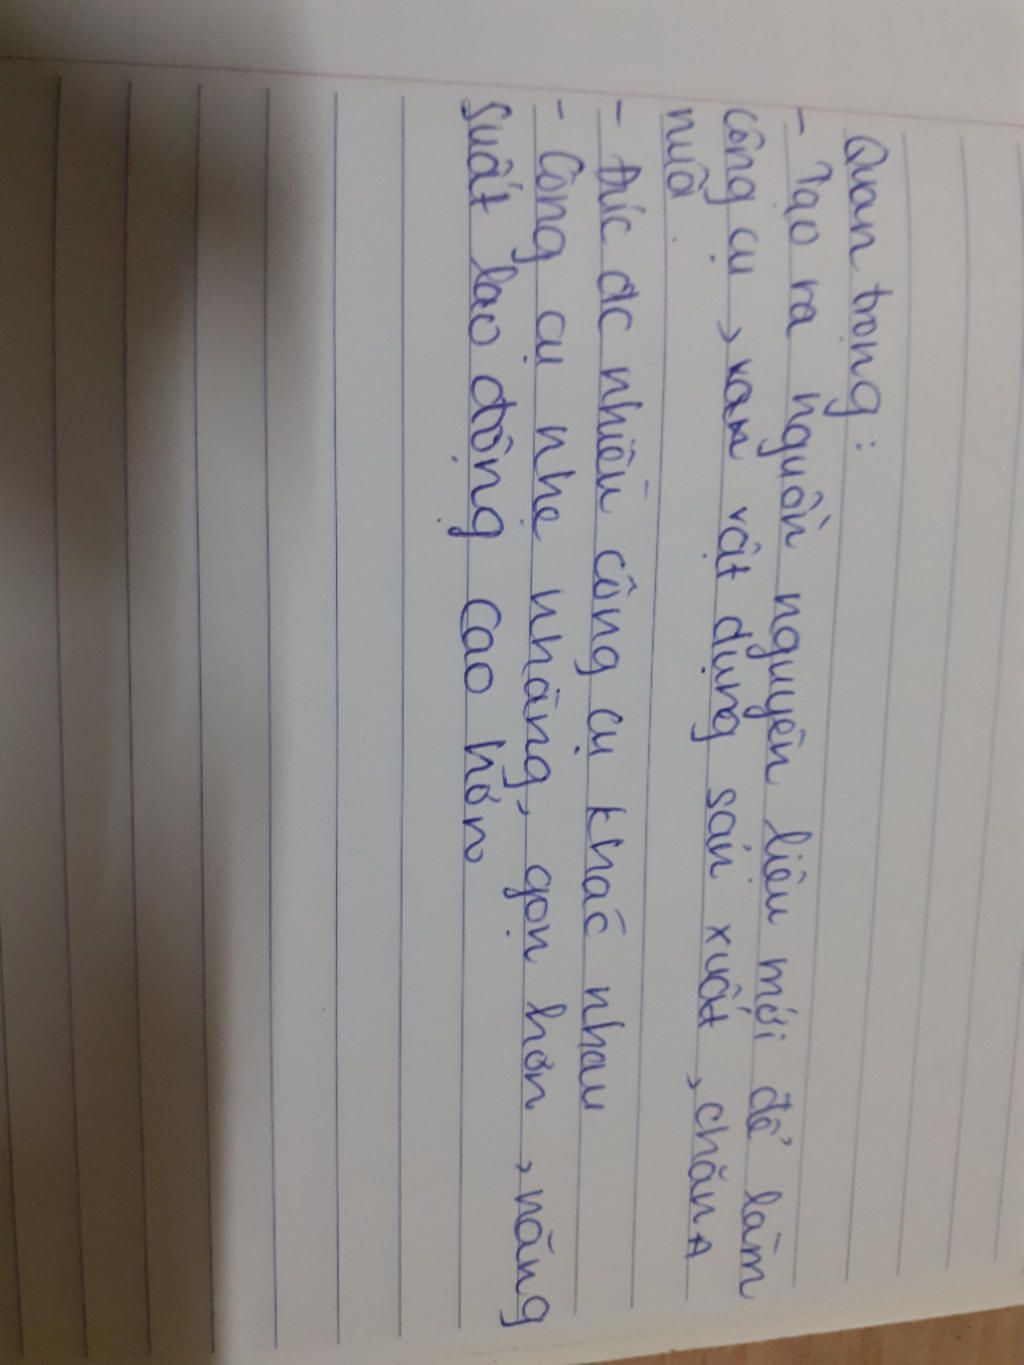 Quan trọng:
- Tạo ra nguồn nguyên liệu mới để làm
công cụ, vật dụng sản xuất, chăn
nuô
- đúc đc nhiều công cụ khác nhau
- Công cụ nhẹ nhàng, gọn hơn, năng
suất lao động cao hơn